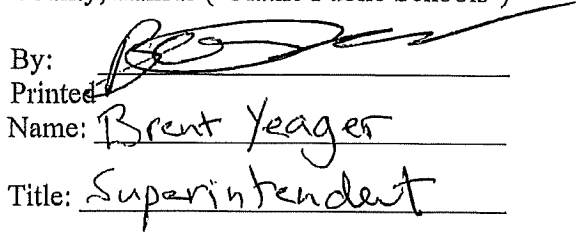 By:
Printed
Name: Brent Yeager
Title: Superintendent